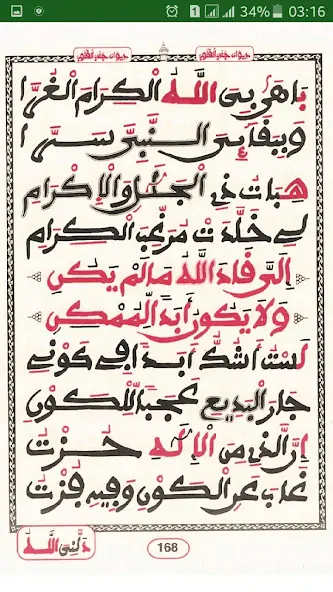 34% 03:16
ديوان جذب القلوب ديوان جذب القلوب
باهى بي الله الكرام الغررا
النبي سررا
هبات ذي الجلال والإكرام
لي خلدت مرغب الكرام
إلي قاد الله ما لم يكن
ولا يكون أبدا لممكن
لست أشك أبدا في كوني
جار البديع عجبا للكون
إن الذي من الإله حزت
غاب عن الكون وفيه فزت
168
دلني الله